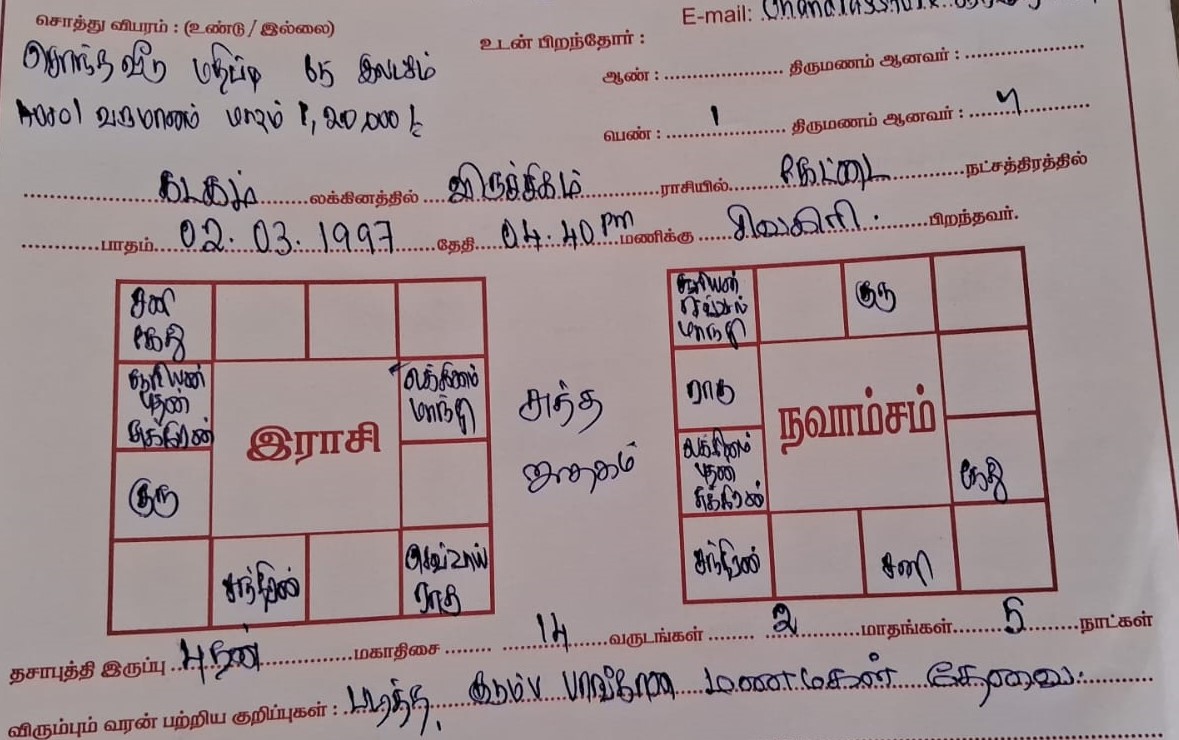 சொத்து விபரம் : (உண்டு / இல்லை)
E-mail:
சொந்த வீடு மதிப்பு 65 இலட்சம்
உடன் பிறந்தோர் :
ஆண் : .................... திருமணம் ஆனவர் : ....................
வருமானம் மாதம் 1,20,000 ட
பெண் : ....... 1 ........ திருமணம் ஆனவர் : ....................
கடகம் லக்கினத்தில் விருச்சிகம் ராசியில் கேட்டை நட்சத்திரத்தில்
பாதம் 02.03.1997 தேதி 04.40 pm மணிக்கு சிவகிரி. பிறந்தவர்.
சனி
கேது
சூரியன்
புதன்
சுக்கிரன்
லக்கினம்
மாந்தி
இராசி
குரு
சந்திரன்
செவ்வாய்
ராகு
சுத்த
ஜாதகம்
சூரியன்
செவ்வாய்
மாந்தி
குரு
ராகு
நவாம்சம்
லக்கினம்
புதன்
சுக்கிரன்
கேது
சந்திரன்
சனி
தசாபுத்தி இருப்பு புதன் மகாதிசை 14 வருடங்கள் 2 மாதங்கள் 5 நாட்கள்
விரும்பும் வரன் பற்றிய குறிப்புகள் : படித்த, குடும்ப மணமகன் தேவை.